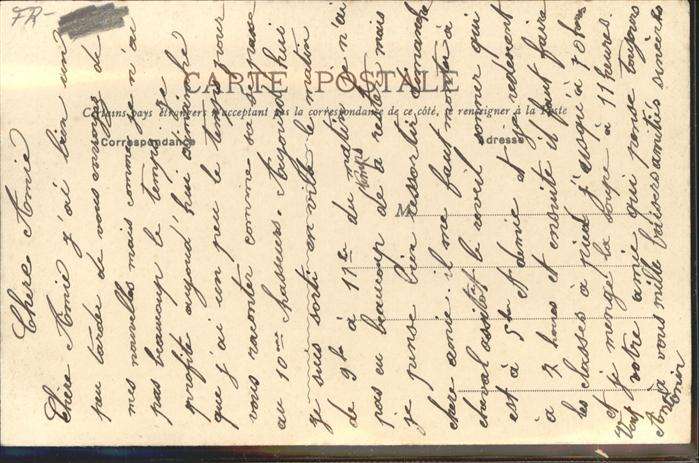 FR-
CARTE POSTALE
Certains pays étrangers n'acceptant pas la correspondance de ce côté, se renseigner à la Poste
Correspondance
Adresse
M
Chère Amie
Chère Amie j'ai bien un
peu tarder de vous envoyez de
mes nouvelles mais comme je n'ai
pas beaucoup le temps je
profite aujourd'hui dimanche
que j'ai un peu le temps pour
vous raconter comme sa se passe
au 10me hussards. Aujourd'hui
je suis sorti en ville le matin
de 9h à 11h du matin je n'ai
pas eu beaucoup de temps de a rester mais
je pense bien ressortir dimanche
chere amie il me faut monter à
cheval assitôt le reveil sonner qui
est à 5h et demie et je redescent
à 7 heures et ensuite il faut faire
les classes à pied j'usqu'à 10 heures
et je mange la soupe à 11 heures.
votre amie qui pense toujours
à vous mille baisers amitiés sincères